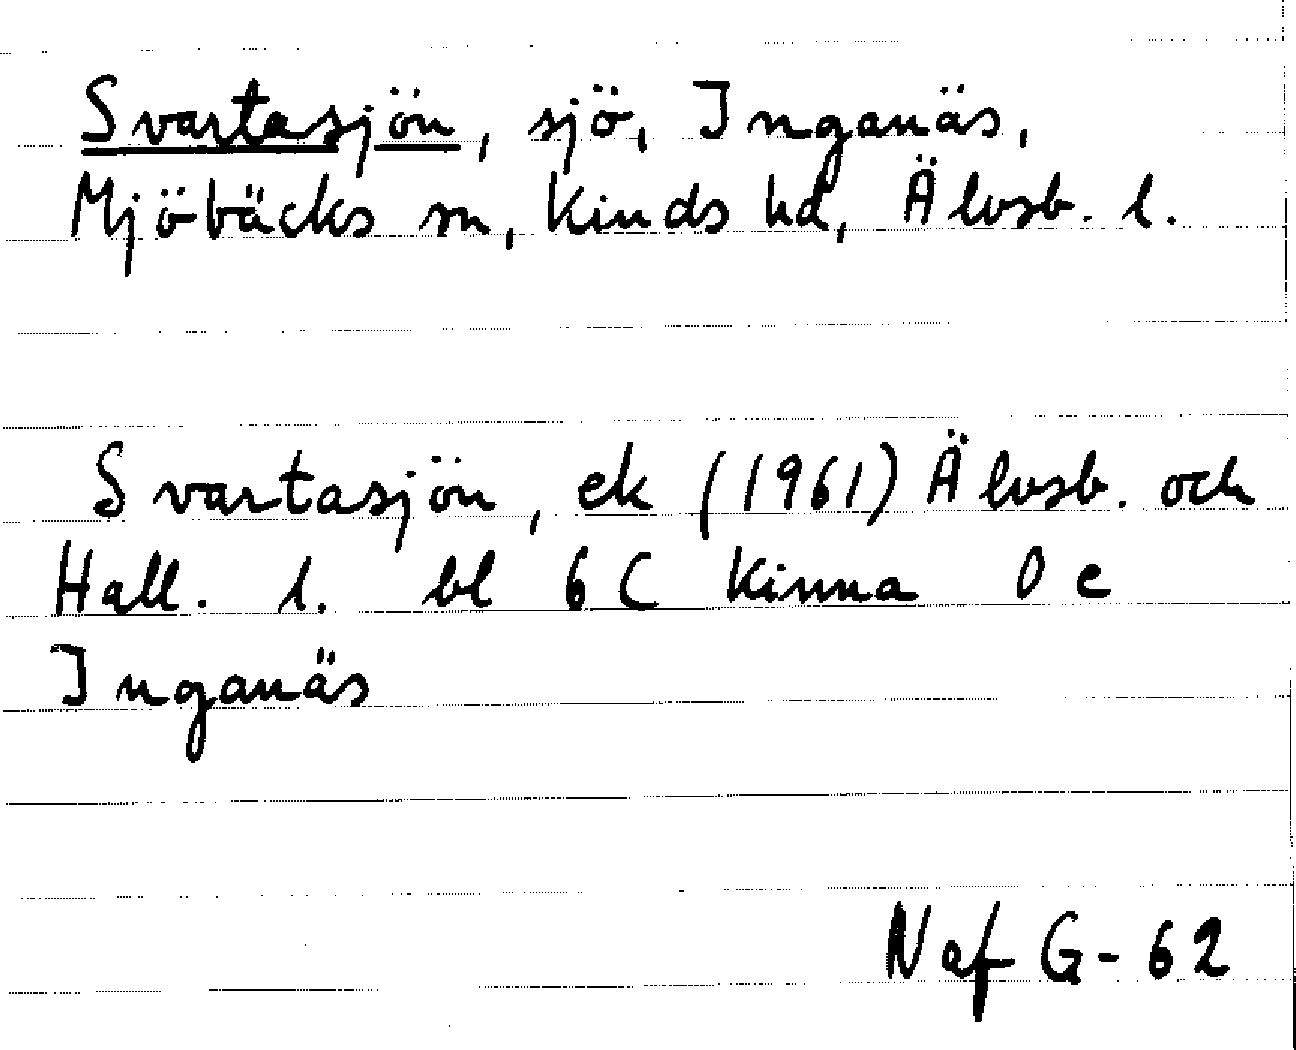 Svartasjön, sjö, Inganäs,
Mjöbäcks sn, Kinds hd, Älvsb. l.
Svartasjön, ek (1961) Älvsb. och
Hall. l. bl 6C Kinna 0 e
Inganäs
Naf G-62